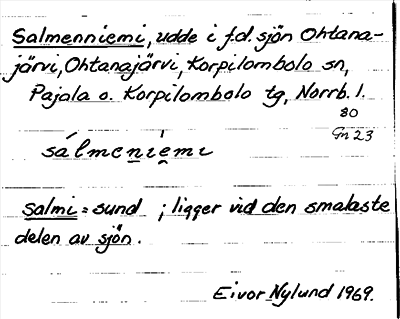 Salmenniemi, udde i f.d. sjön Ohtana-
järvi, Ohtanajärvi, Korpilombolo sn,
Pajala o. Korpilombolo tg, Norrb. l.
80
Gn 23
sálmeniemi
salmi = sund ; ligger vid den smalaste
delen av sjön.
Eivor Nylund 1969.